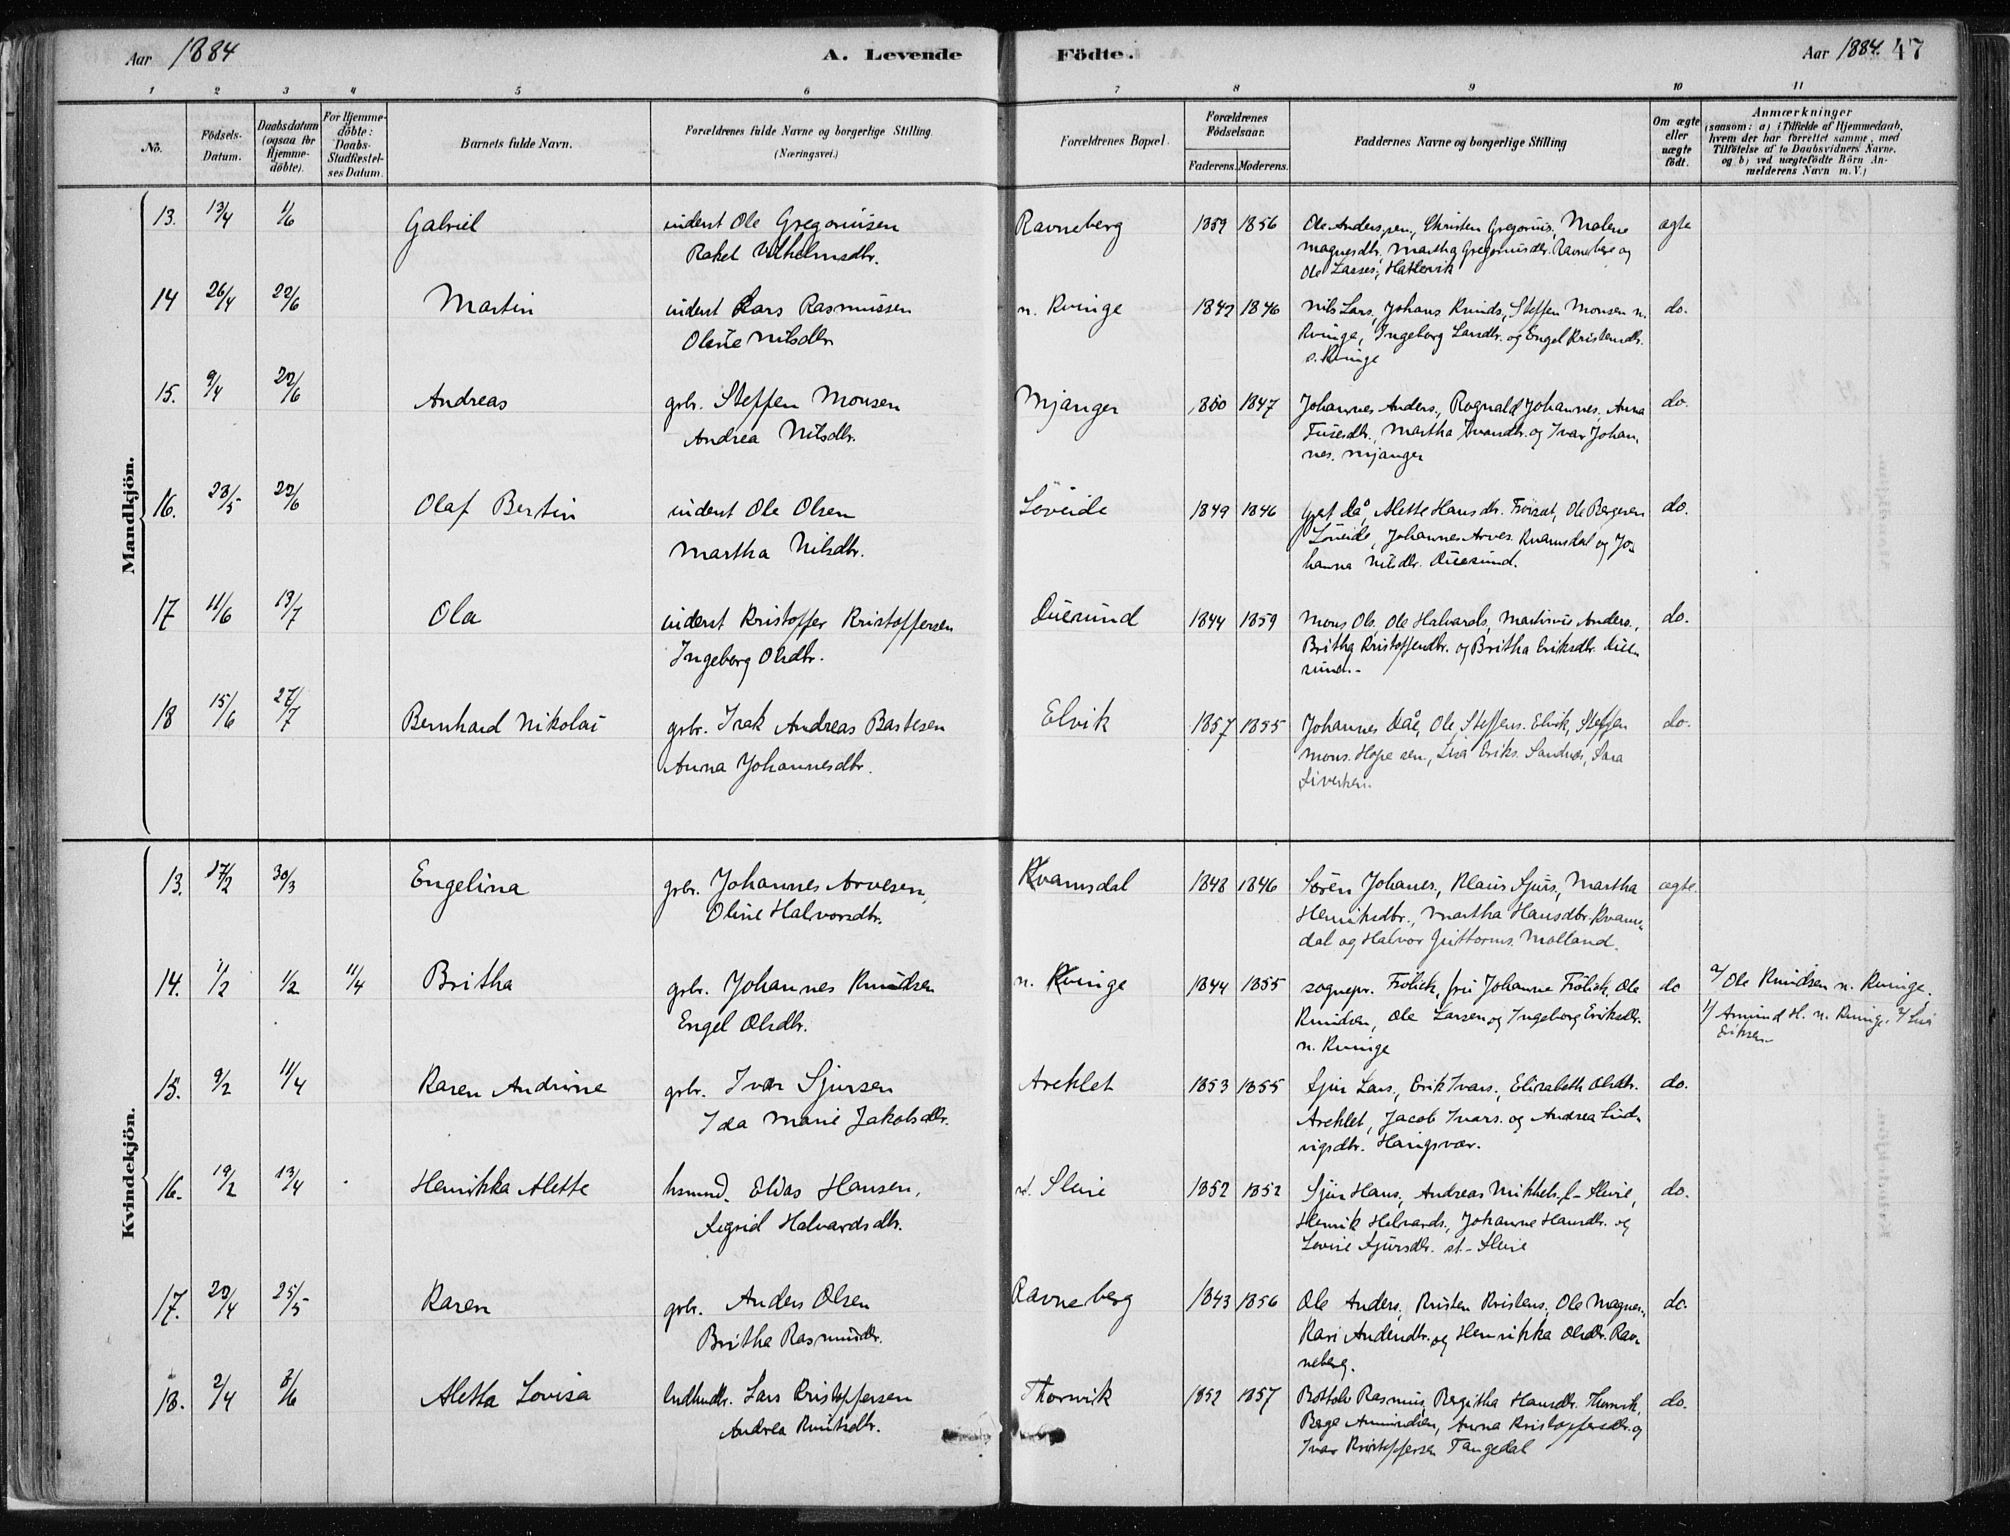 Aar 1884 A. Levende Födte. Aar 1884. 47
1 2 3 4 5 6 7 8 9 10 11
No. Födsels-Datum. Daabsdatum (ogsaa for Hjemme-döbte). For Hjemme-döbte: Daabs-Stadfæstel-ses Datum. Barnets fulde Navn. Forældrenes fulde Navne og borgerlige Stilling. (Næringsvei.) Forældrenes Bopæl. Forældrenes Födselsaar. Faderens. Moderens. Faddernes Navne og borgerlige Stilling Om ægte eller uægte födt. Anmærkninger (saasom: a) i Tilfælde af Hjemmedaab, hvem der har forrettet samme, med Tilföielse af to Daabsvidners Navne. og b) ved uægtefödte Börn An-melderens Navn m. V.)
Mandkjön.
13. 13/4 1/6 Gabriel inderst Ole Gregoriusen Ravneberg 1859 1856 Ole Andersen, Christen Gregorius, Malene ægte
Rakel Vilhelmsdtr. Magnesdtr., Martha Gregoriusdtr. Ravneberg og
Ole Lasses, Hatlevik
14 26/4 22/6 Martin inderst Lars Rasmussen n. Kvinge 1842 1846 Nils Lars., Johans Knuds., Steffen Monsen n. do.
Oline Nilsdtr. Kvinge, Ingeborg Larsdtr. og Engel Kristensdtr.
s. Kvinge
15. 9/4 22/6 Andreas gbr. Steffen Monsen Mjanger 1860 1847 Johannes Anders., Rognald Johannes., Anna do.
Andrea Nilsdtr. Martha Ivarsdtr. og Ivar Johan-
nes. Mjanger
16. 23/5 22/6 Olaf Bertin inderst Ole Olsen Löveide 1849 1846 Alette Hansdtr. Ole Bergesen do.
Martha Nilsdtr. Löveide, Johannes Arves. Kvamsdal og Jo-
hanna Nilsdtr. Duesund.
17 11/6 13/7 Ola inderst Kristoffer Kristoffersen Duesund 1844 1859 Mons Ols., Ole Halvards., Martinus Anders., do.
Ingeborg Olsdtr. Britha Kristoffersdtr. og Britha Eriksdtr. Due-
sund.
18 15/6 27/7 Bernhard Nikolai gbr. Isak Andreas Bastesen Elvik 1857 1855 Johannes Daae, Ole Steffens. Elvik, Steffen do.
Anna Johannesdtr. Mons. Hope sen., Lisa Eriks. Sandnes, Sara
Siversen.
Kvindekjön.
13. 17/2 30/3 Engelina gbr. Johannes Arvesen, Kvamsdal 1848 1846 Sören Johanes., Klaus Sjurs., Martha ægte.
Oline Halvorsdtr. Henriksdtr., Martha Hansdtr. Kvams-
dal og Halvor Guttorms. Molland.
14. 1/2 1/2 11/4 Britha gbr. Johannes Knudsen n. Kvinge 1844 1855 sognepr. Frölich, fru Johanne Frölich, Ole do a/ Ole Knudsen n. Kvinge.
Engel Olsdtr. Knudsen, Ole Larsen og Ingeborg Eriksdtr. 1/ Amund H. n. Kvinge, 2/ Lisa
n. Kvinge Eriksen
15. 9/2 11/4 Karen Andrine gbr. Ivar Sjursen Areklet 1853 1855 Sjur Lars., Erik Ivars., Elisabeth Olsdtr. do.
Ida Marie Jakobsdtr. Areklet, Jacob Ivars. og Andrea Lud-
vigsdtr. Haugsvær.
16. 19/2 13/4 Henrikka Alette husmd. Elias Hansen, st. Sleire 1852 1852 Sjur Hans., Andreas Mikkels. l-Sleire, do.
Sigrid Halvardsdtr. Henrik Halvards., Johanne Hansdtr. og
Lovise Sjursdtr. st-Sleire
17. 20/4 25/5 Karen gbr. Anders Olsen Ravneberg 1843 1856 Ole Anders., Kristen Kristens., Ole Magnes., do.
Britha Rasmusdtr. Kari Andersdtr. og Henrikka Olsdtr. Rav-
neberg.
18. 2/4 8/6 Aletha Lovisa Lars Kristoffersen Thorvik 1852 1857 Bottolv Rasmus., Bergitha Hansdtr. Thorvik, do.
Andrea Knutsdtr. Berge Amundsen, Anna Kristoffersdtr. og
Ivar Kristoffersen Tangedal